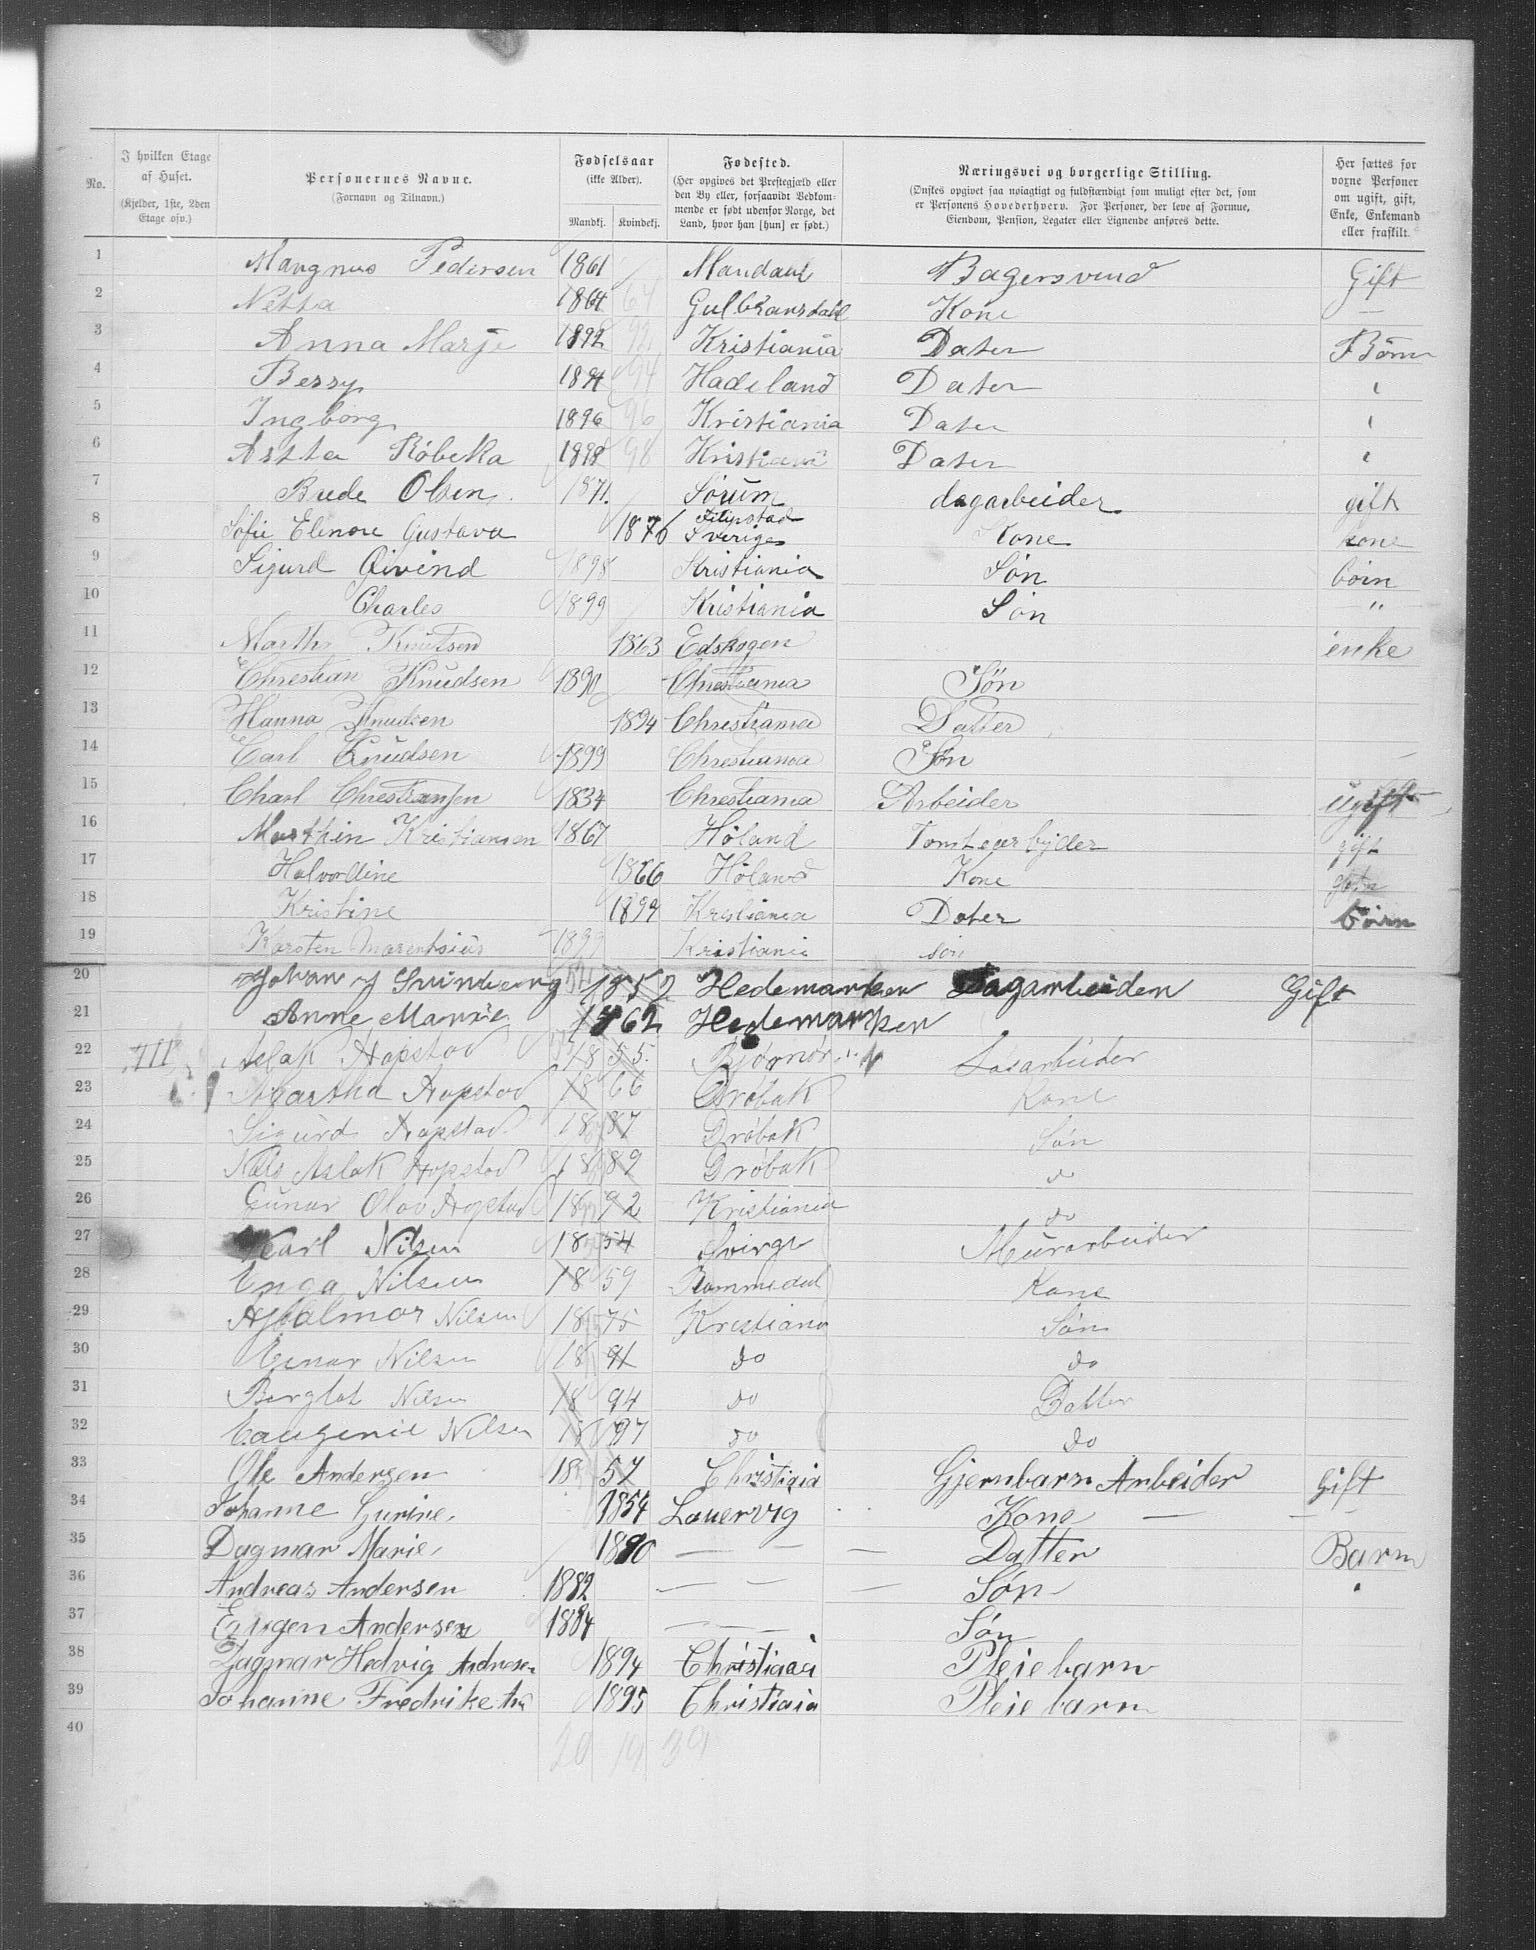 No.
I hvilken Etage af Huset. (Kjelder, 1ste, 2den Etage osv.)
Personernes Navne. (Fornavn og Tilnavn.)
Fødselsaar (ikke Alder). Mandkj. Kvindekj.
Fødested. (Her opgives det Prestegjæld eller den By eller, forsaavidt Vedkommende er født udenfor Norge, det Land, hvor han [hun] er født.)
Næringsvei og borgerlige Stilling. (Ønskes opgivet saa nøiagtigt og fuldstændigt som muligt efter det, som er Personens Hovederhverv. For Personer, der leve af Formue, Eiendom, Pension, Legater eller Lignende anføres dette.
Her sættes for voxne Personer om ugift, gift, Enke, Enkemand eller fraskilt.
1 Mangnus Pedersen 1861 Mandahl Bagersvend Gift
2 Netta 1864 64 Gulbransdahl Kone —
3 Anna Marje 1892 92 Kristiania Dater Börn
4 Bessy 1894 94 Hadeland Dater "
5 Ingborg 1896 96 Kristiania Dater "
6 Astta Röbeka 1898 98 Kristiani Dater "
7 Brede Olsen. 1871. Sørum dagarbeider gift
8 Sofie Elenore Gustava 1876 Filipstad Sverige Kone kone
9 Sigurd Øivind 1898 Kristiania Sön börn
10 Charles 1899 Kristiania Sön "
11 Marth Knutsen 1863 Edskogen enke
12 Christian Knudsen 1890 Christiania Søn
13 Hanna Knudsen 1894 Christiania Datter
14 Carl Knudsen 1899 Christiania Søn
15 Charl Christiansen 1834 Christiania Arbeider ugift
16 Marthin Kristiansen 1867 Höland Tomtearbijder gift
17 Halvordine 1866 Höland Kone
18 Kristine 1899 Kristiania Doter börn
19 Karsten Marentsius 1899 Kristiania sön
20 Johan Svinberg 1852 Hedemarken Dagarbeiden Gift
21 Anne Marie 1862 Hedemarken
22 III Aslak Hopstad 1855. Bjørnør Løsarbeider
23 Martha Hopstad 1866 Drøbak Kone
24 Sigurd Hopstad 1887 Drøbak Søn
25 Nils Aslak Hopstad 1889 Drøbak do
26 Gunar Olav Hopstad 1892 Kristiania do
27 Karl Nilsen 1854 Svirge Murarbeider
28 Enga Nilsen 1859 Rommedal Kone
29 Hjalmar Nilsen 1875 Kristiania Søn
30 Einar Nilsen 1891 do do
31 Borglot Nilsen 1894 do Datter
32 Eaugenie Nilsen 1897 do do
33 Ole Andersen 1857 Christiaia Gjernbarn Arbeider Gift
34 Johanne Gurine. 1854 Lauervig Kone — —
35 Dagmar Marie. 1880 — — — Datter Barn
36 Andreas Andersen 1882 — — — Søn "
37 Eugen Andersen 1884 — — — Søn
38 Dagmar Hedvig Andresen 1894 Christiaai Pleiebarn
39 Johanne Fredrikke 1895 Christiaia Pleiebarn
40
20 19 39